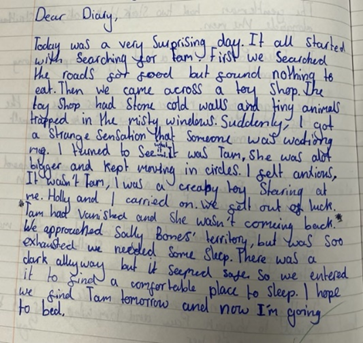 Dear Diary,
Today was a very surprising day. It all started
with searching for Tam. First we searched
the roads for food but found nothing to
eat. Then we came across a toy shop. The
toy shop had stone cold walls and tiny animals
trapped in the misty windows. Suddenly, I got
a strange sensation that someone was watching
me. I turned to see it was Tam. She was alot
bigger and kept moving in circles. I felt anxious,
It wasn't Tam, I was a creapy toy staring at
me. Holly and I carried on. We felt out of luck.
Tam had vanished and she wasn't coming back.
We approached Sally Bones' territory, but was soo
exhausted we needed some sleep. There was a
dark alleyway but it seemed safe. So we entered
it to find a comfortable place to sleep. I hope
we find Tam tomorrow and now I'm going
to bed.